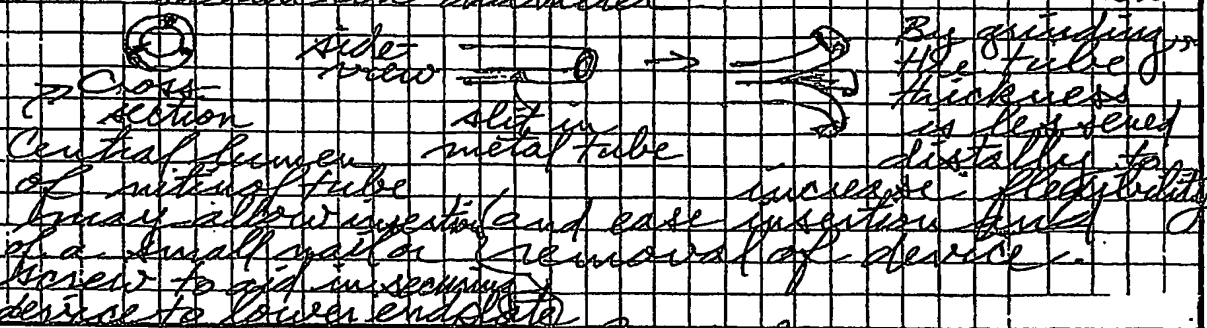 side
view
Cross
section
slit in
metal tube
By grinding
the tube
thickness
is lessened
distally to
increase flexibility
(and ease insertion and
removal of device.
Central lumen
of nitinol tube
may allow insertion
of a small nail or
screw to aid in securing
device to lower endplate